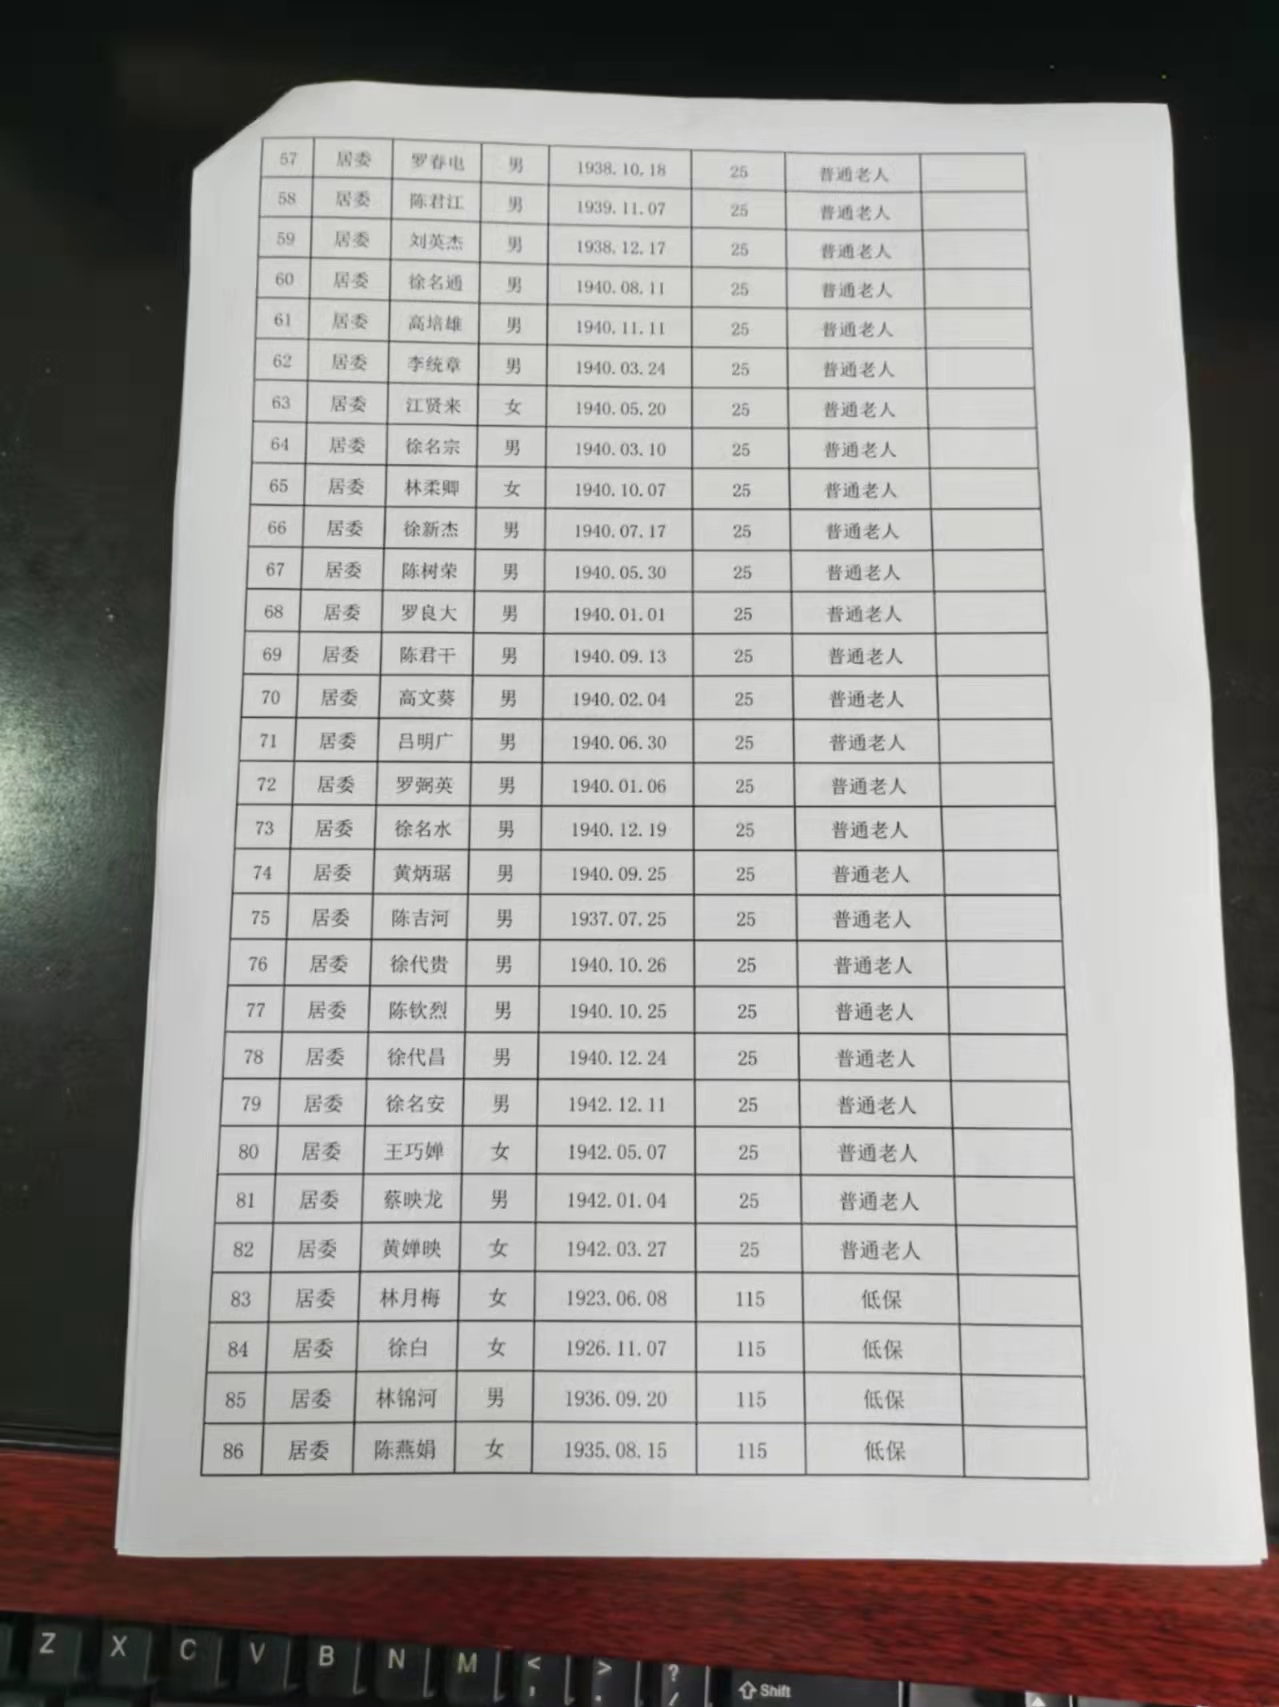 57 居委 罗春电 男 1938.10.18 25 普通老人
58 居委 陈君江 男 1939.11.07 25 普通老人
59 居委 刘英杰 男 1938.12.17 25 普通老人
60 居委 徐名通 男 1940.08.11 25 普通老人
61 居委 高培雄 男 1940.11.11 25 普通老人
62 居委 李统章 男 1940.03.24 25 普通老人
63 居委 江贤来 女 1940.05.20 25 普通老人
64 居委 徐名宗 男 1940.03.10 25 普通老人
65 居委 林柔卿 女 1940.10.07 25 普通老人
66 居委 徐新杰 男 1940.07.17 25 普通老人
67 居委 陈树荣 男 1940.05.30 25 普通老人
68 居委 罗良大 男 1940.01.01 25 普通老人
69 居委 陈君干 男 1940.09.13 25 普通老人
70 居委 高文葵 男 1940.02.04 25 普通老人
71 居委 吕明广 男 1940.06.30 25 普通老人
72 居委 罗弼英 男 1940.01.06 25 普通老人
73 居委 徐名水 男 1940.12.19 25 普通老人
74 居委 黄炳琚 男 1940.09.25 25 普通老人
75 居委 陈吉河 男 1937.07.25 25 普通老人
76 居委 徐代贵 男 1940.10.26 25 普通老人
77 居委 陈钦烈 男 1940.10.25 25 普通老人
78 居委 徐代昌 男 1940.12.24 25 普通老人
79 居委 徐名安 男 1942.12.11 25 普通老人
80 居委 王巧婵 女 1942.05.07 25 普通老人
81 居委 蔡映龙 男 1942.01.04 25 普通老人
82 居委 黄婵映 女 1942.03.27 25 普通老人
83 居委 林月梅 女 1923.06.08 115 低保
84 居委 徐白 女 1926.11.07 115 低保
85 居委 林锦河 男 1936.09.20 115 低保
86 居委 陈燕娟 女 1935.08.15 115 低保
Z X C V B N M < , > . ? / Shift